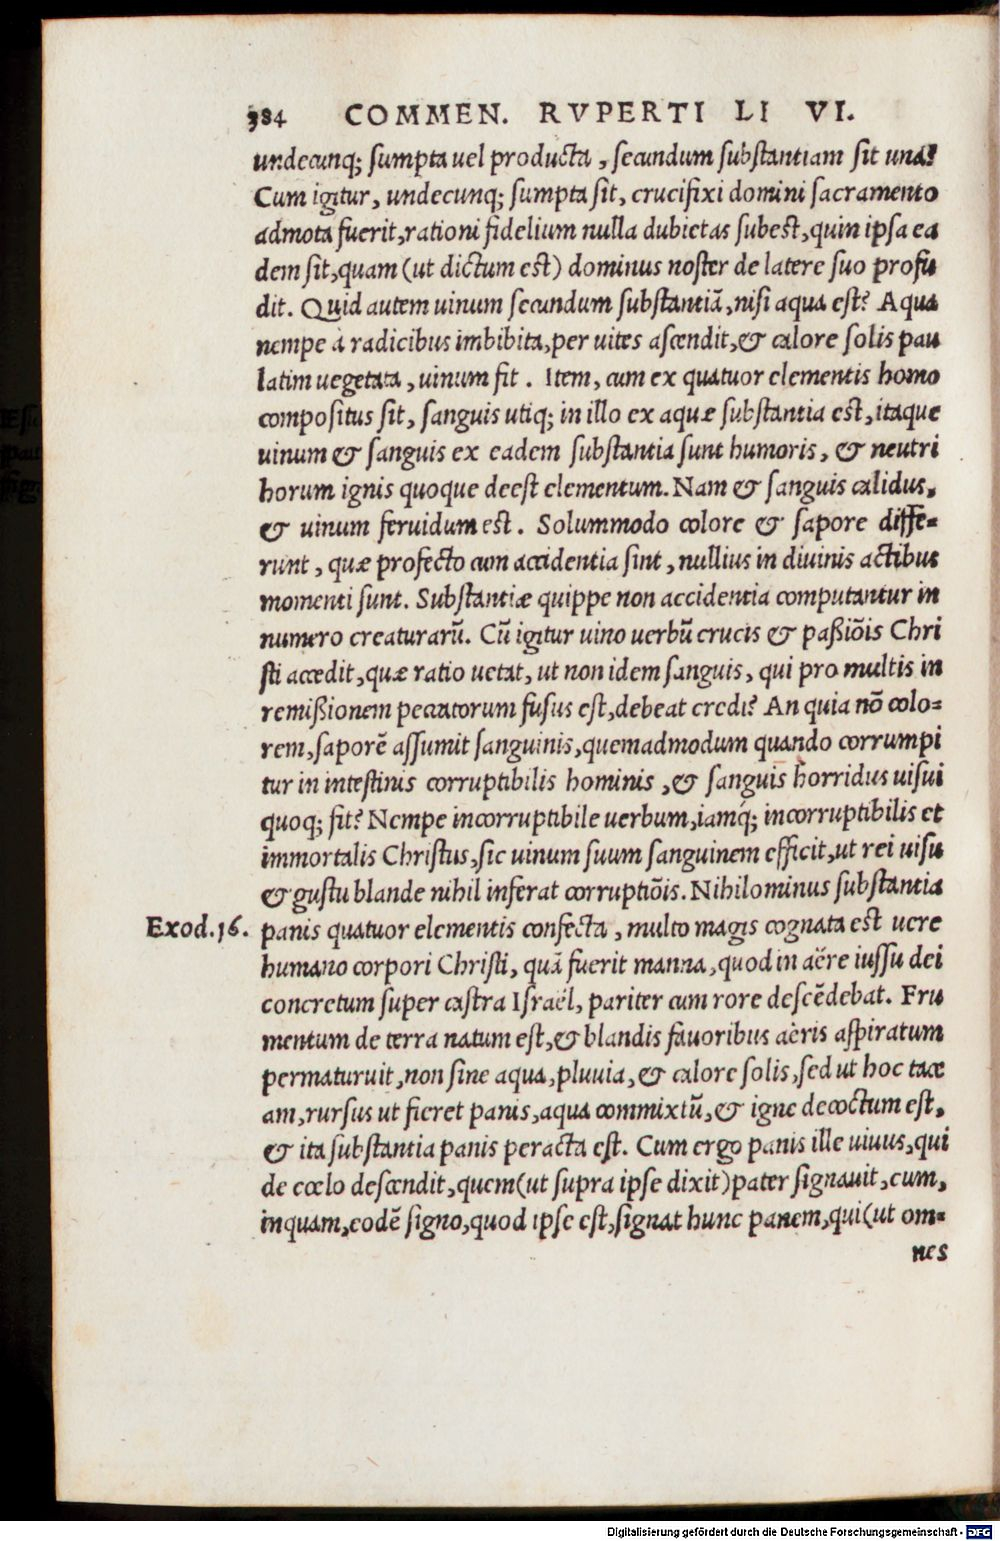 384 COMMEN. RVPERTI LI VI.
undecunq; sumpta uel producta, secundum substantiam sit una?
Cum igitur, undecunq; sumpta sit, crucifixi domini sacramento
admota fuerit, rationi fidelium nulla dubietas subest, quin ipsa ea
dem sit, quam (ut dictum est) dominus noster de latere suo profu
dit. Quid autem uinum secundum substantiã, nisi aqua est? Aqua
nempe à radicibus imbibita, per uites ascendit, & calore solis pau
latim uegetata, uinum fit. Item, cum ex quatuor elementis homo
compositus sit, sanguis utiq; in illo ex aquæ substantia est, itaque
uinum & sanguis ex eadem substantia sunt humoris, & neutri
horum ignis quoque deest elementum. Nam & sanguis calidus,
& uinum feruidum est. Solummodo colore & sapore diffe=
runt, quæ profecto cum accidentia sint, nullius in diuinis actibus
momenti sunt. Substantiæ quippe non accidentia computantur in
numero creaturarũ. Cũ igitur uino uerbũ crucis & paßiõis Chri
sti accedit, quæ ratio uetat, ut non idem sanguis, qui pro multis in
remißionem peccatorum fusus est, debeat credi? An quia nõ colo=
rem, saporẽ assumit sanguinis, quemadmodum quando corrumpi
tur in intestinis corruptibilis hominis, & sanguis horridus uisui
quoq; fit? Nempe incorruptibile uerbum, iamq́; incorruptibilis et
immortalis Christus, sic uinum suum sanguinem efficit, ut rei uisu
& gustu blande nihil inferat corruptiõis. Nihilominus substantia
Exod.16. panis quatuor elementis confecta, multo magis cognata est uere
humano corpori Christi, quã fuerit manna, quod in aëre iussu dei
concretum super castra Israël, pariter cum rore descẽdebat. Fru
mentum de terra natum est, & blandis fauoribus aëris aspiratum
permaturuit, non sine aqua, pluuia, & calore solis, sed ut hoc tace
am, rursus ut fieret panis, aqua commixtũ, & igne decoctum est,
& ita substantia panis peracta est. Cum ergo panis ille uiuus, qui
de cœlo descendit, quem (ut supra ipse dixit) pater signauit, cum,
inquam, eodẽ signo, quod ipse est, signat hunc panem, qui (ut om=
nes
Digitalisierung gefördert durch die Deutsche Forschungsgemeinschaft - DFG